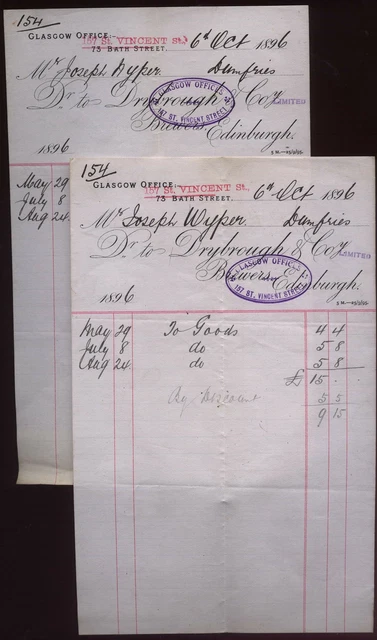 154
GLASGOW OFFICE:-
157 ST. VINCENT St.,
73 BATH STREET.
6th Oct 1896
Mr Joseph Wyper Dumfries
Dr. to Drybrough & Coy LIMITED
Brewers, Edinburgh.
GLASGOW OFFICE
157 ST. VINCENT STREET
1896
May 29
July 8
Aug 24
154
GLASGOW OFFICE:-
157 ST. VINCENT St.,
73 BATH STREET.
6th Oct 1896
Mr Joseph Wyper. Dumfries
Dr. to Drybrough & Coy LIMITED
Brewers, Edinburgh.
GLASGOW OFFICE
157 ST. VINCENT STREET
1896
May 29 To Goods 4 4
July 8 do 5 8
Aug 24. do 5 8
£ 15 .
By Discount 5 5
9 15